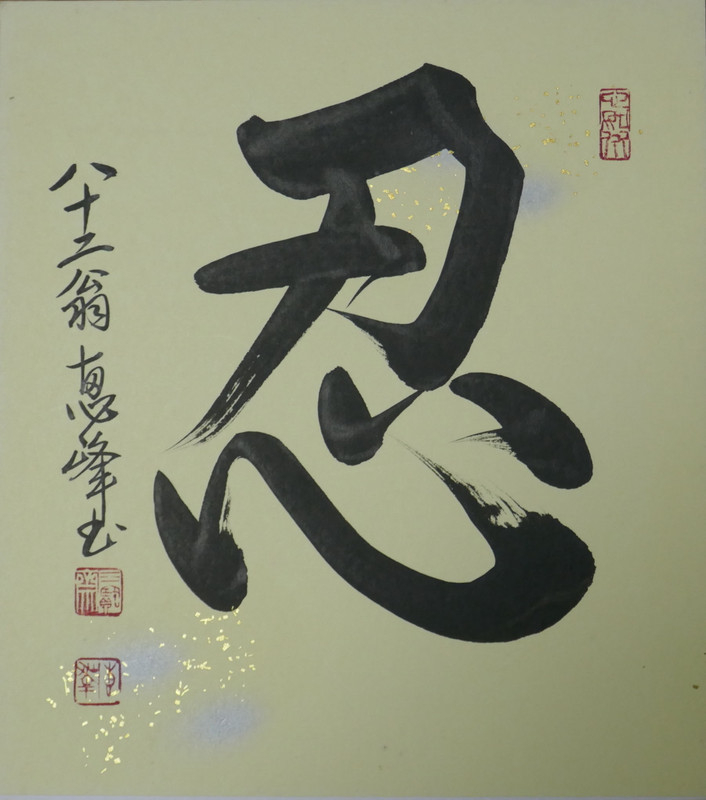 忍
八十二翁 恵峰書